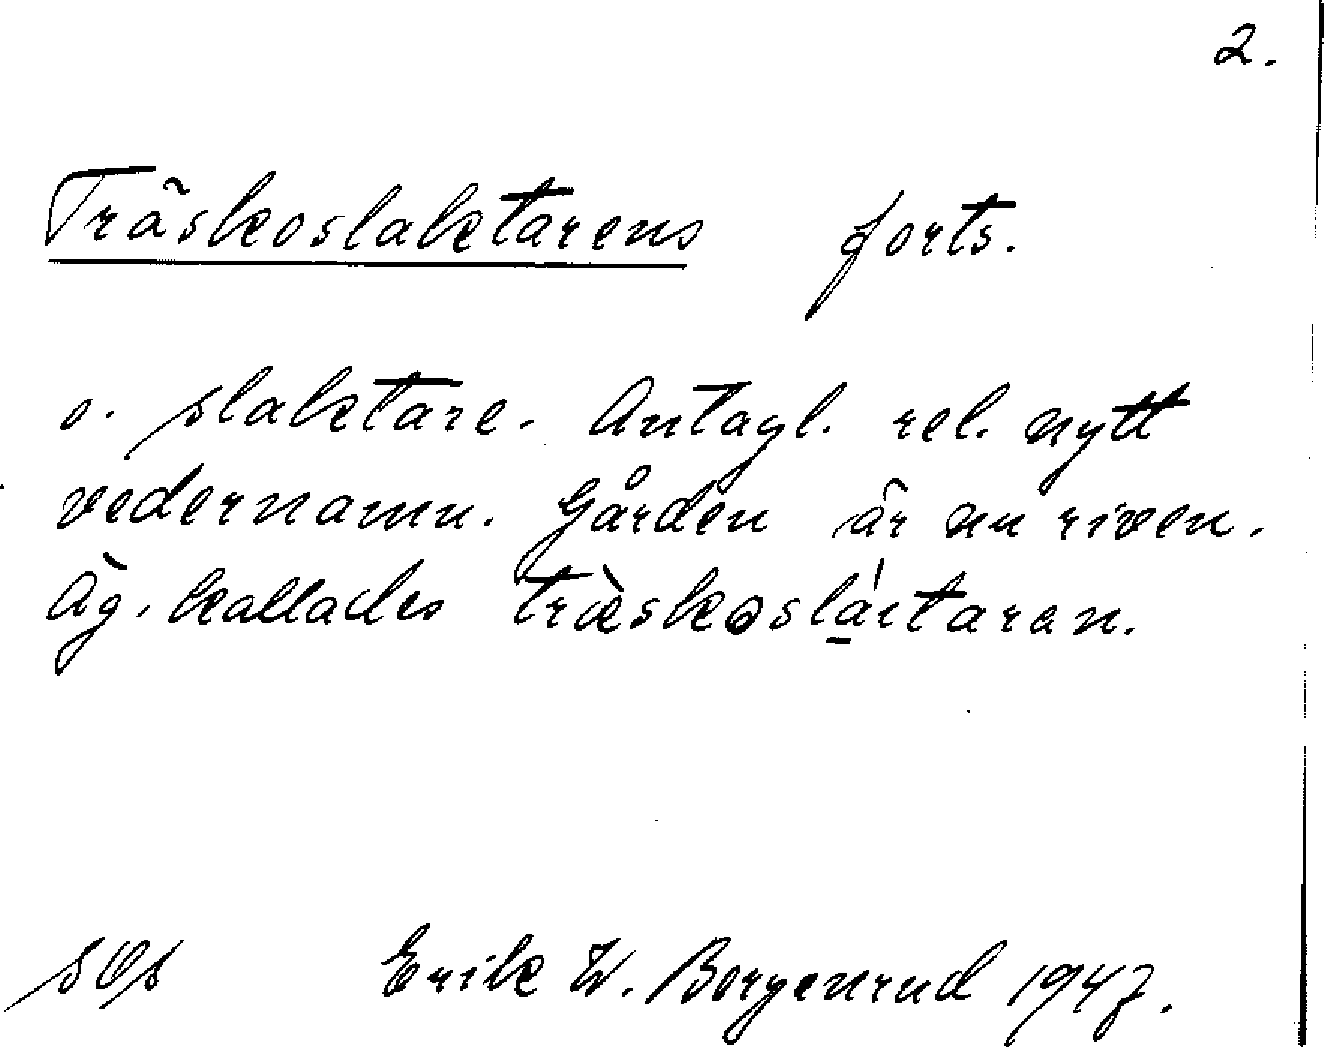 2.
Träskoslaktarens forts.
o. slaktare. Antagl. rel. nytt
vedernamn. Gården är nu riven.
Äg. kallades
Erik W. Borgenrud 1947.